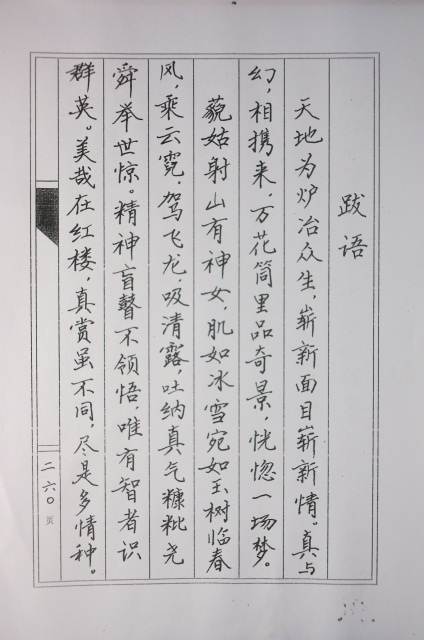 跋语
天地为炉冶众生，崭新面目崭新情。真与
幻，相携来，万花筒里品奇景，恍惚一场梦。
藐姑射山有神女，肌如冰雪宛如玉树临春
风，乘云霓，驾飞龙，吸清露，吐纳真气糠粃尧
舜举世惊。精神盲瞽不领悟，唯有智者识
群英。美哉在红楼，真赏虽不同，尽是多情种。
二六〇页